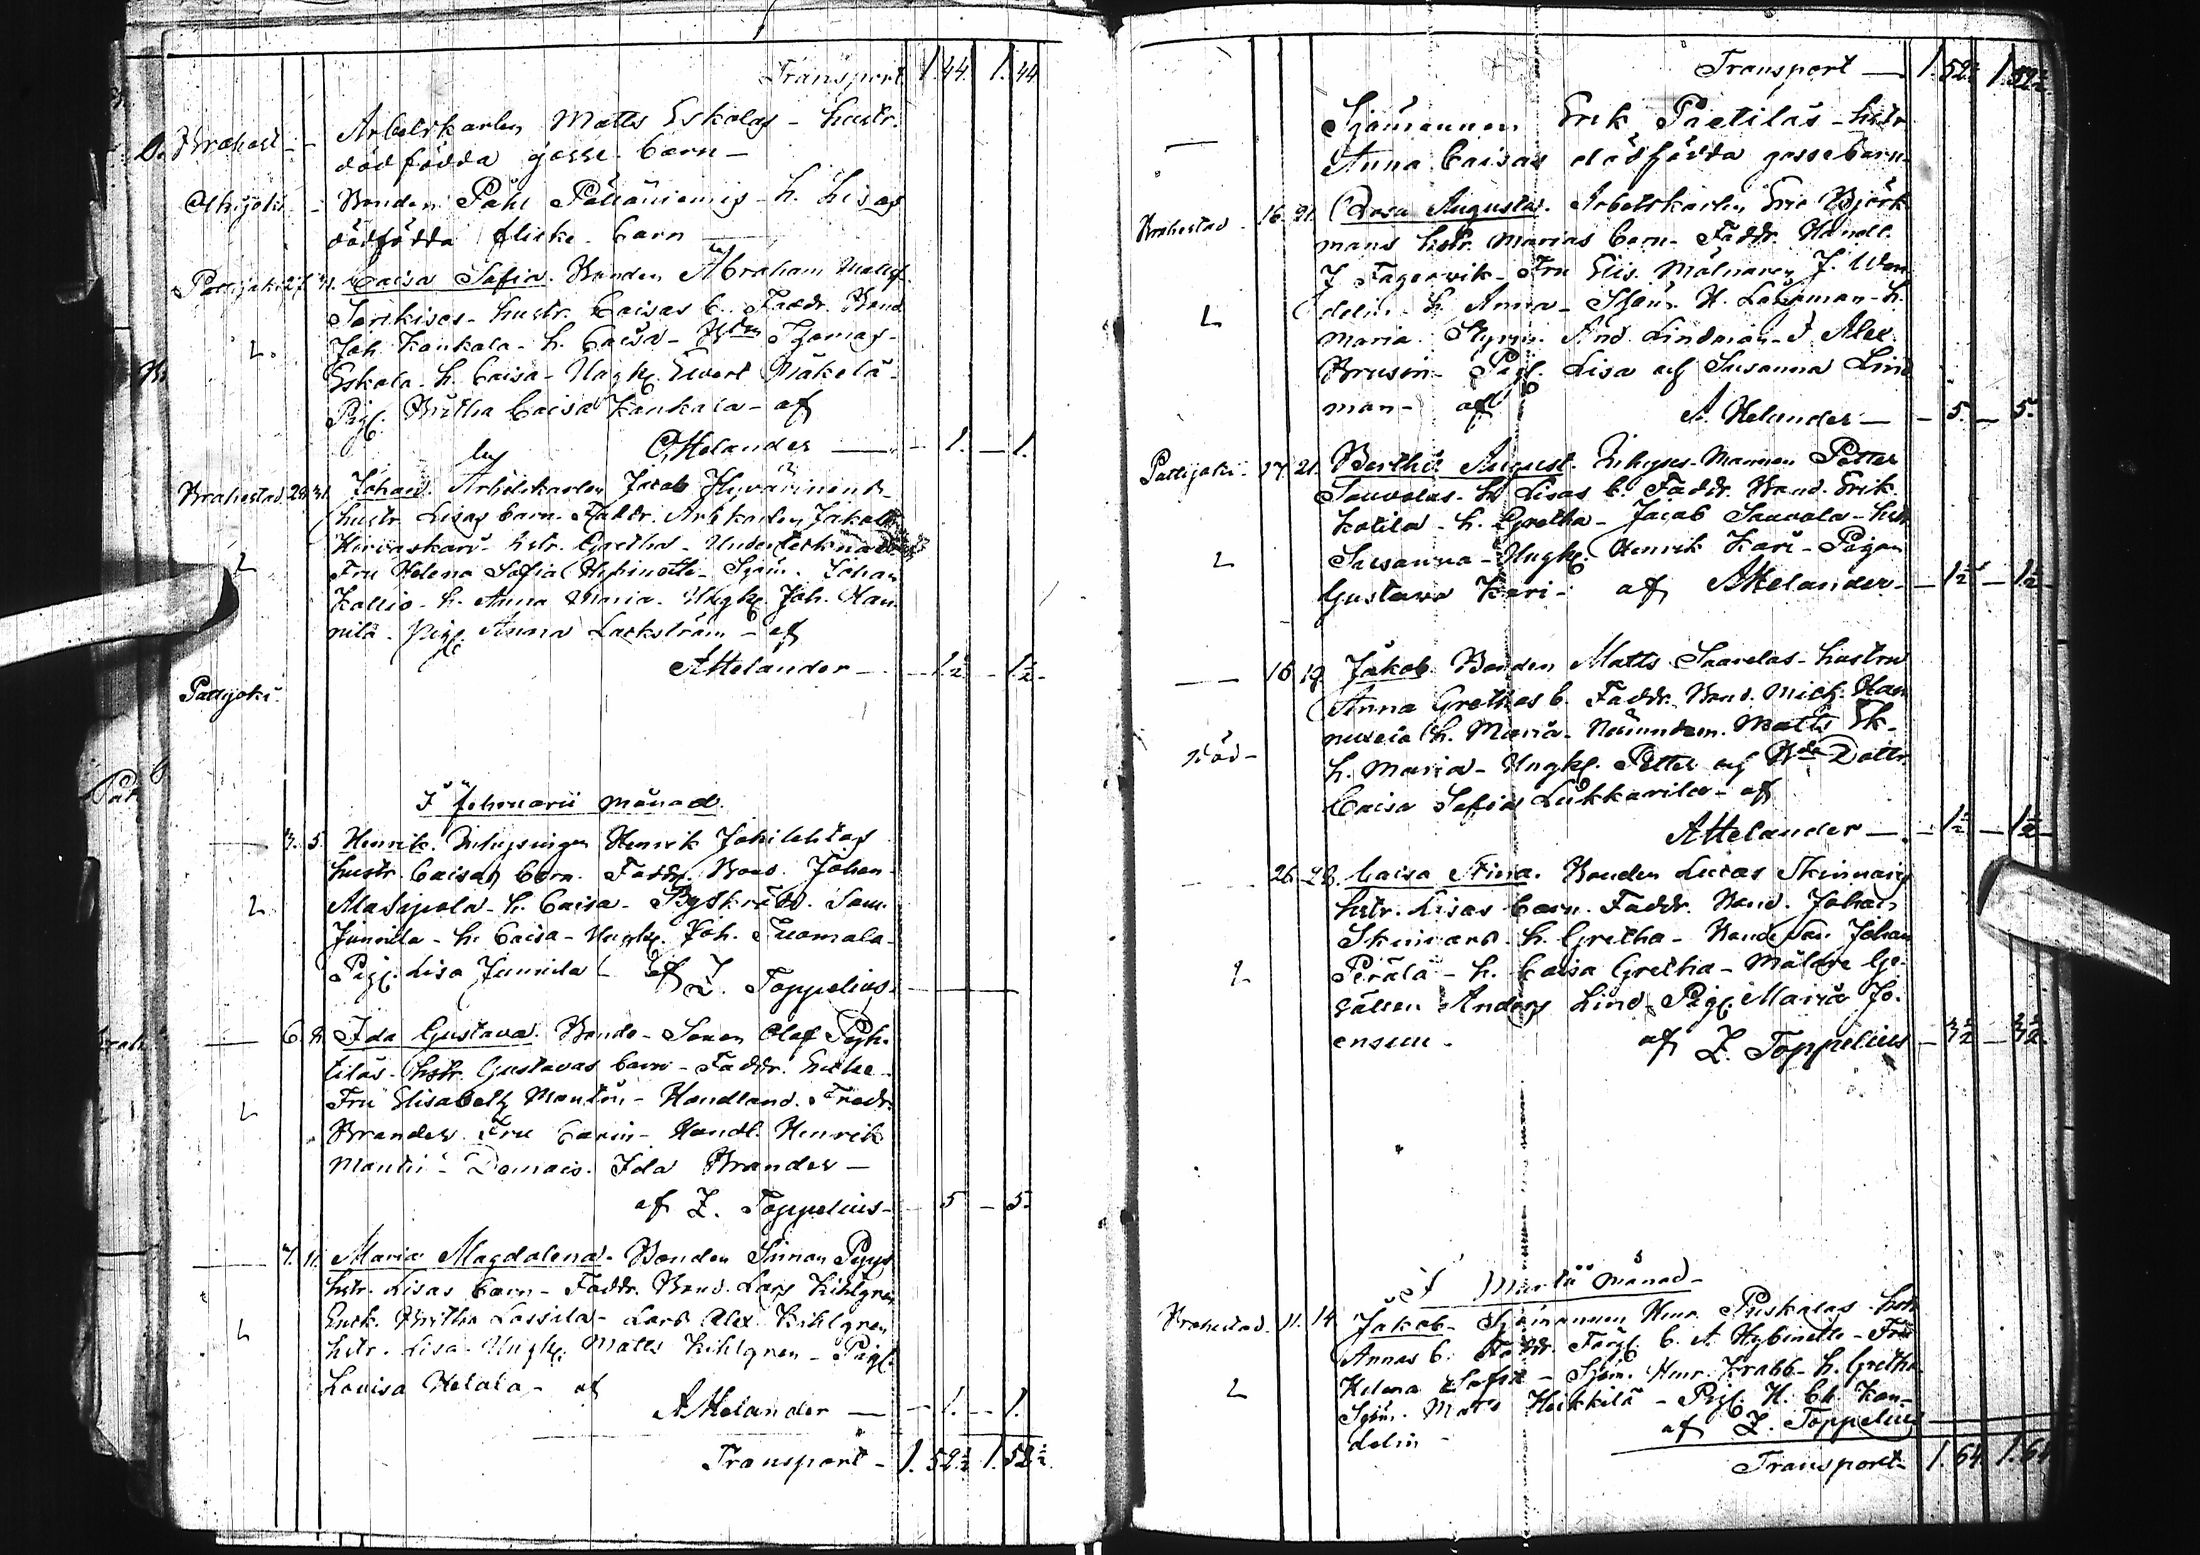 Transport 1.44. 1.44
Brahest - Arbetskarlen Matts Eskolas - hustr.
dödfödda gosse barn -
Olkijoki - Bonden Påhl Pälläniemis - h. Lisas
dödfödda flicke barn
Pattijoki 27. 31. Caisa Sofia. Bonden Abraham Matts.
hustr. Caisas b. Faddr. Bond.
Joh. Kaukala - h. Caisa -
L. Eskola - h. Caisa - Ungk. Evert Mäkelä -
Pig. Britha Caisa Kaukala - af
A Helander — - 1. - 1.
Brahestad 29. 31. Johan. Arbetskarlen Jacob Hyvärinens
hustr. Lisas barn. Faddr. Arbkarlen Jakob
hstr. Gretha - Undertecknad
L Fru Helena Sofia Hybinette - Sjöm. Johan
Kallio - h. Anna Maria - Ungk. Joh. Han
nila - Pig. Anna Lackström - af
A Helander - - 1½ - 1½ -
Pattijoki
I februarii månad.
3. 5. Henrik. Inhysingen Henrik Jokilehtos
hustr. Caisas barn. Faddr. Bond. Johan
L - h. Caisa - Byskräd. Sam.
Junnila - h. Caisa - Ungk. Joh. Tuomala -
Pig. Lisa Junnila - af Z. Toppelius -
6. 8. Ida Gustava. Bonde-Sonen Olof Pyh-
tilas - hstr. Gustavas barn - Faddr. Enke-
L Fru Elisabeth Mantin - Handland. Fredr.
Brander Fru Carin - Handl. Henrik
Mantin - Demois. Ida Brander -
af Z. Toppelius - - 5 - 5.
7. 11. Maria Magdalena. Bonden Simon
hstr. Lisas barn - Faddr. Bond. Lars Kihlgren
Enk. Britha Lassila - Alex. Kihlgren
L hstr. Lisa - Ungk. Matts Kihlgren - Pig.
Lovisa Helala - af
A Helander — - 1. - 1.
Transport - 1. 52½ 1. 52½
Transport — 1. 52½ 1. 52½
— Sjömannen Erik Pietilas - hstr
Anna Caisas dödfödda gossebarn -
Brahestad - 16. 21. Rosa Augusta. Arbetskarlen Eric Björk
mans hstr. Marias barn - Faddr. Handl.
J Fagervik - Fru Elis. Mölnaren J. Wen
L delin - h. Anna - Sjöm. H. Löfman - h.
Maria. Styrm. And. Lindman - J. Alex.
Brusin - Pig. Lisa och Susanna Lind
man - af A. Helander — - 5. - 5.
Pattijoki - 17. 21. Berthil August. Inhyses-Mannen Petter
Sauvolas - h. Lisas b. Faddr. Bond. Erik
Kotila - h. Gretha - Jacob Sauvola - hstr
L Susanna - Ungk. Henrik Kari - Pigan
Gustava Kari - af A Helander - - 1½ - 1½ -
— 16 19. Jakob. Bonden Matts Saarelas - hustru
Anna Grethas b. Faddr. Bond. Mich. Han
h. Maria - Nämndem. Matts Ek -
Död - h. Maria - Ungk. Petter och Dottr.
Caisa Sofia Lukkarila - af
A Helander — - 1½ - 1½
26. 28. Caisa Stina. Bonden Lucas Skinnars
hstr. Lisas barn. Faddr. Bond. Johan
Skinnars - h. Gretha - Bonde Son Johan
L Perälä - h. Caisa Gretha - Målare Ge-
sällen Anders Lind - Pig. Maria Jo-
ensuu - af Z. Toppelius - 3½ - 3½
I Martii månad -
Brahestad. 11. 14 Jakob. Sjömannen Henr. Piiskalas hstr
Annas b. Faddr. Färg. C. A. Hybinette - Fru
Helena Sofia - Sjöm. Henr. Krabb - h. Gretha
L Sjöm. Matts Heikkilä - Pig. H. Ch. Kan-
delin - af Z. Toppelius
Transport - 1. 64 1. 64